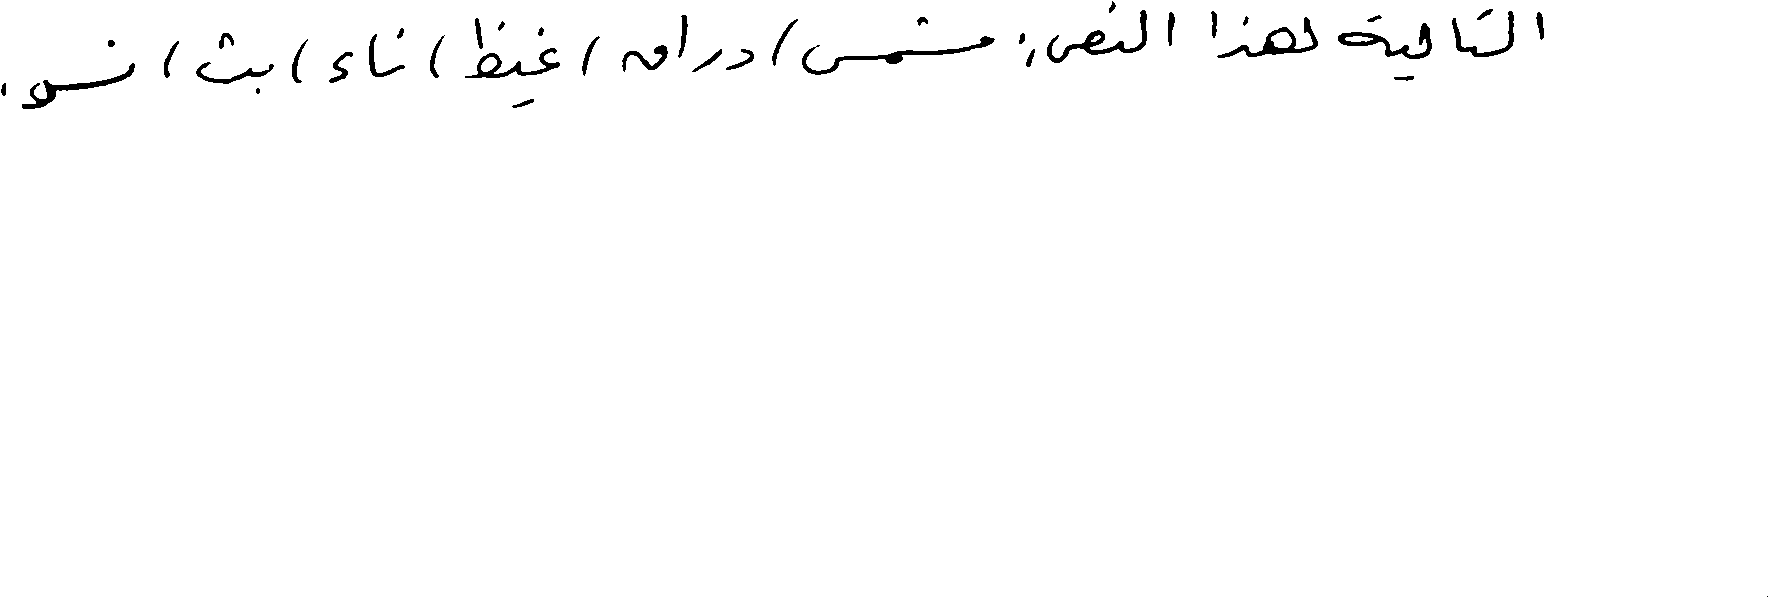 التالية لهذا النص: مشمس، دراق، غيظ، ناء، بث،